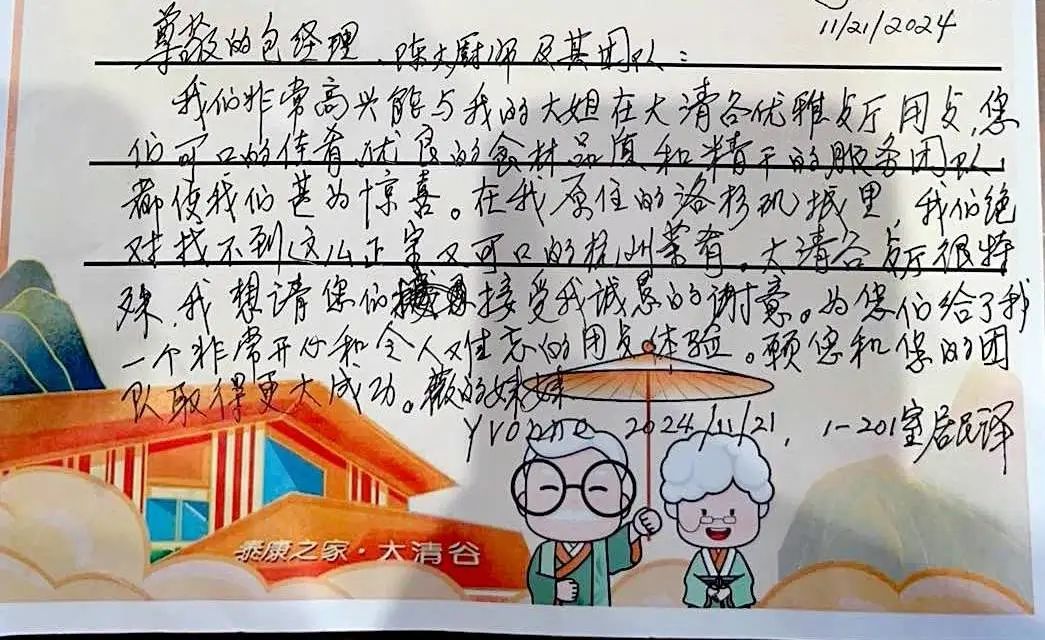 11/21/2024
尊敬的包经理、陈大厨师及其团队：
我们非常高兴能与我的大姐在大清谷优雅歺厅用歺,您
们可口的佳肴,优良的食材品质和精干的服务团队
都使我们甚为惊喜。在我原住的洛杉矶城里,我们绝
对找不到这么正宗又可口的杭州菜肴。大清谷歺厅很特
殊,我想请您们接受我诚恳的谢意。为您们给了我
一个非常开心和令人难忘的用歺体验。愿您和您的团
队取得更大成功。薇的妹妹
Yvonne 2024/11/21, 1-201室居民译
泰康之家·大清谷